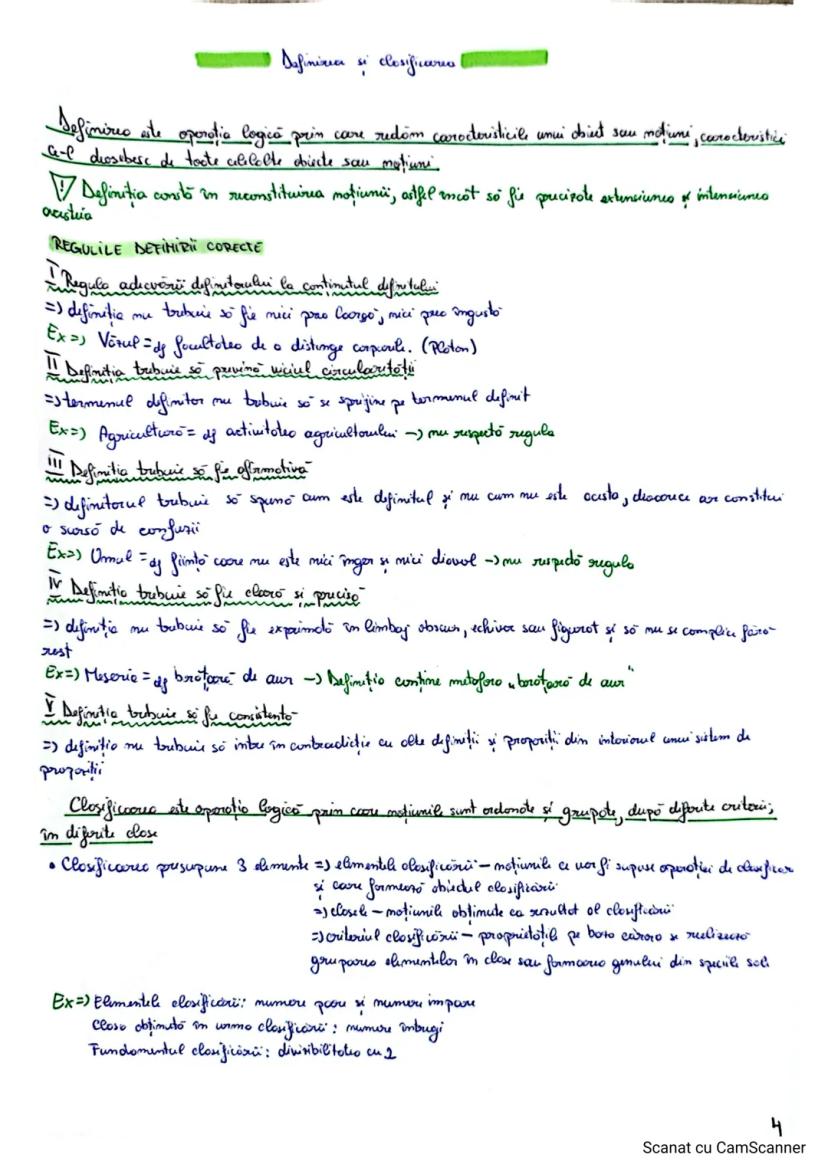 Definirea și clasificarea
Definirea este operația logică prin care redăm caracteristicile unui obiect sau noțiuni, caracteristici
ce-l deosibesc de toate celelalte obiecte sau noțiuni
! Definiția constă în reconstituirea noțiunii, astfel încât să fie precizate extensiunea și intensiunea
acesteia
REGULILE DEFINIRII CORECTE
I Regula adecvării definitorului la conținutul definitului
=) definiția nu trebuie să fie nici prea largă, nici prea îngustă
Ex =) Văzul =df facultatea de a distinge corpurile. (Platon)
II Definiția trebuie să prevină viciul circularității
=) termenul definitor nu trebuie să se sprijine pe termenul definit
Ex=) Agricultură = df activitatea agricultorului -) nu respectă regula
III Definitia trebuie să fie afirmativă
=) definitorul trebuie să spună cum este definitul și nu cum nu este acesta, deoarece ar constitui
o sursă de confuzii
Ex=) Omul =df ființă care nu este nici înger și nici diavol -) nu respectă regula
IV Definitia trebuie să fie clară si precisă
=) definiția nu trebuie să fie exprimată în limbaj obscur, echivoc sau figurat și să nu se complice fără
rest
Ex=) Meseria =df brățară de aur -) Definiția conține metafora „brățară de aur"
V Definiția trebuie să fie consistentă
=) definiția nu trebuie să intre în contradicție cu alte definiții și propoziții din interiorul unui sistem de
propoziții
Clasificarea este operația logică prin care noțiunile sunt ordonate și grupate, după diferite criterii,
în diferite clase
• Clasificarea presupune 3 elemente =) elementele clasificării - noțiunile ce vor fi supuse operației de clasificare
și care formează obiectul clasificării
=) clasele - noțiunile obținute ca rezultat al clasificării
=) criteriul clasificării - proprietățile pe baza cărora se realizează
gruparea elementelor în clase sau formarea genului din speciile sale
Ex=) Elementele clasificării: numere pare și numere impare
Clasa obținută în urma clasificării: numere întregi
Fundamentul clasificării: divizibilitatea cu 2
4
Scanat cu CamScanner